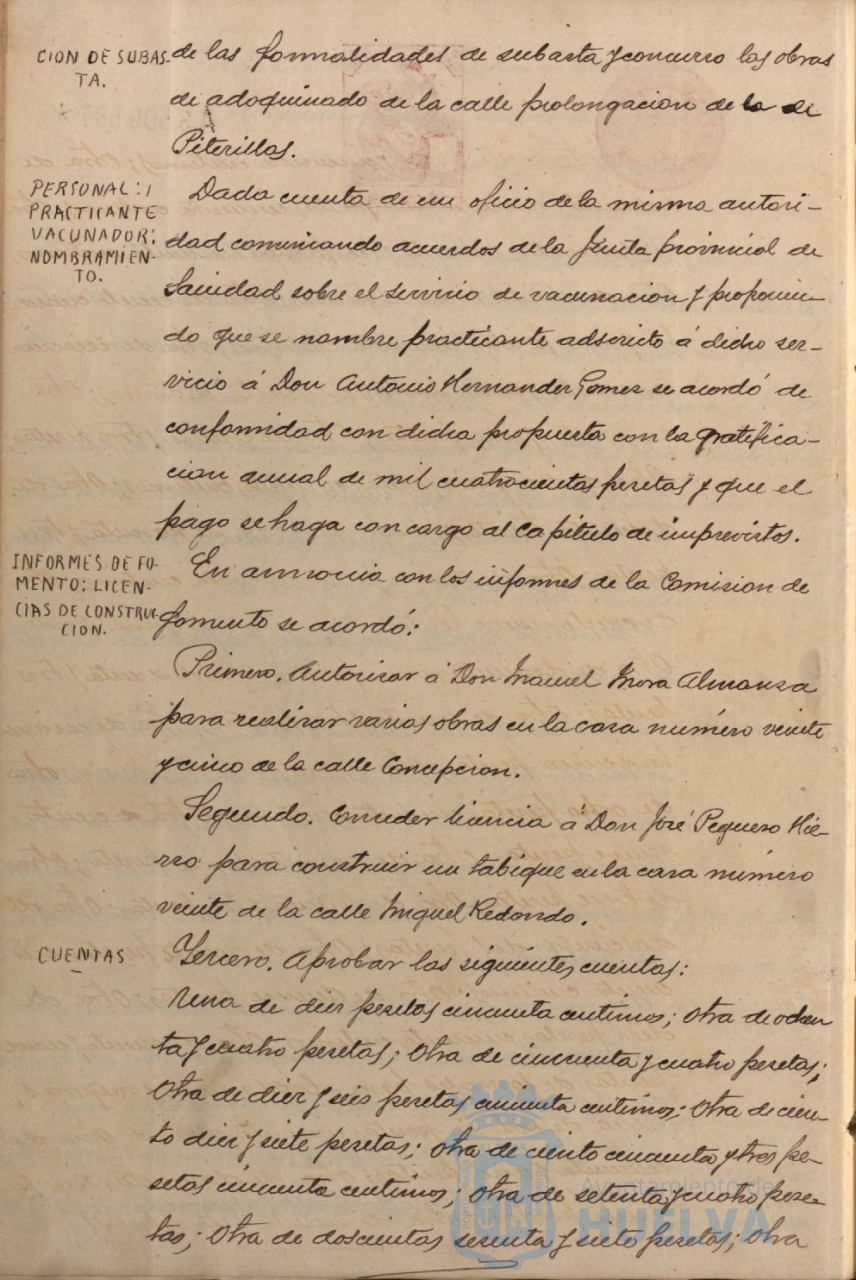 CION DE SUBAS-
TA.
de las formalidades de subasta y concurso las obras
de adoquinado de la calle prolongacion de la de
Piterillas.
PERSONAL: 1
PRACTICANTE
VACUNADOR:
NOMBRAMIEN-
TO.
Dada cuenta de un oficio de la misma autori-
dad comunicando acuerdos de la Junta provincial de
Sanidad sobre el servicio de vacunacion y proponien-
do que se nombre practicante adscrito á dicho ser-
vicio á Don Antonio Hernandez Gomez se acordó de
conformidad con dicha propuesta con la gratifica-
cion anual de mil cuatrocientas pesetas y que el
pago se haga con cargo al capitulo de imprevistos.
INFORMES DE FO-
MENTO: LICEN-
CIAS DE CONSTRUC-
CION.
En armonia con los informes de la Comision de
fomento se acordó:
Primero. Autorizar á Don Manuel Mora Almansa
para realizar varias obras en la casa número veinte
y cinco de la calle Concepcion.
Segundo. Conceder licencia á Don José Peguero Hie-
rro para construir un tabique en la casa número
veinte de la calle Miguel Redondo.
CUENTAS
Tercero. Aprobar las siguientes cuentas:
Una de diez pesetas cincuenta centimos; Otra de ochen
ta y cuatro pesetas; Otra de cincuenta y cuatro pesetas;
Otra de diez y seis pesetas cincuenta centimos; Otra de cien-
to diez y siete pesetas; Otra de ciento cincuenta y tres pe-
setas cincuenta centimos; Otra de setenta y cuatro pese-
tas; Otra de doscientas sesenta y siete pesetas; Otra
Ayuntamiento de
HUELVA